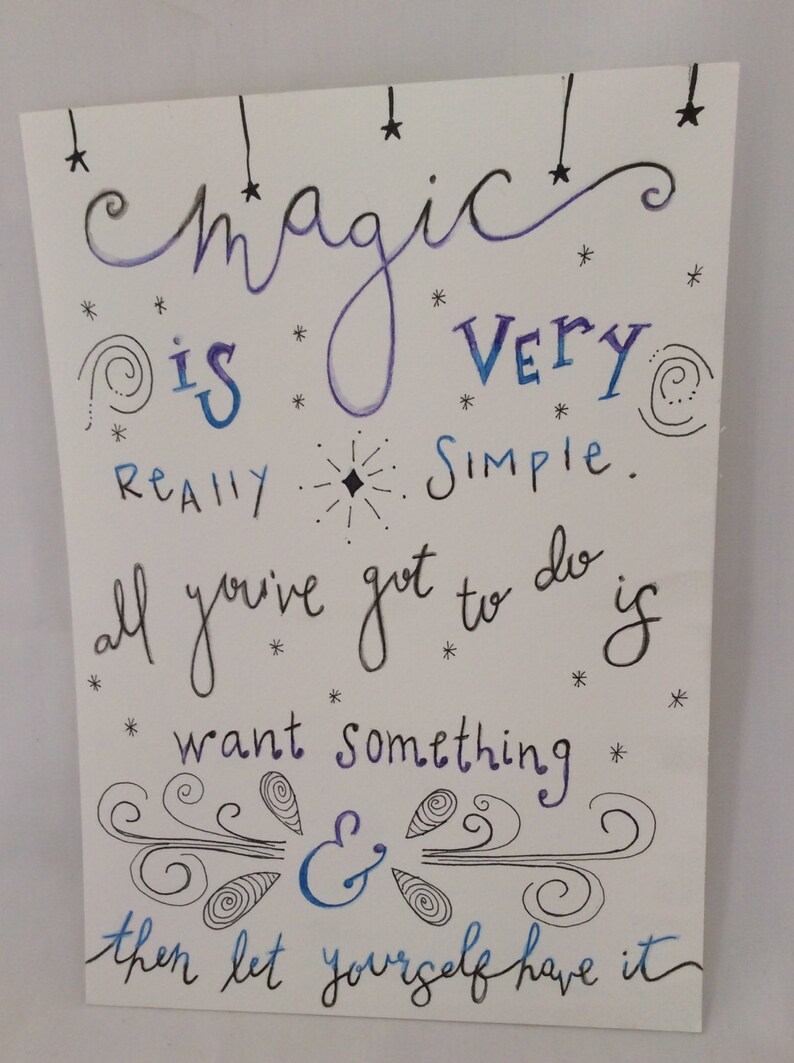 magic
is VERY
REALLY SIMPLE.
all you've got to do is
want something
&
then let yourself have it